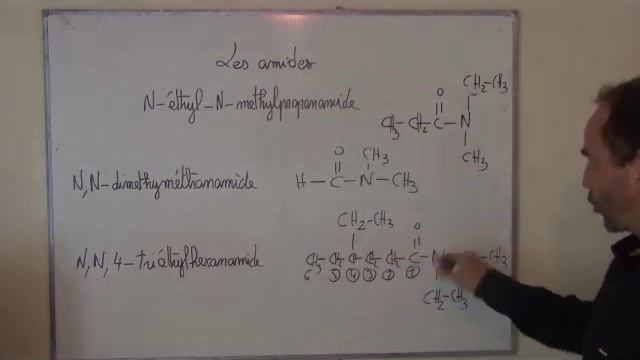 Les amides
N-éthyl-N-méthylpropanamide
CH₃-CH₂-C-N
O
CH₂-CH₃
CH₃
N,N-diméthyméthanamide
H-C-N-CH₃
O
CH₃
N,N,4-triéthylhexanamide
CH₂-CH₃
O
CH₃-CH₂-C-CH₂-CH₂-C-N
-CH₃
6 5 4 3 2 1
CH₂-CH₃